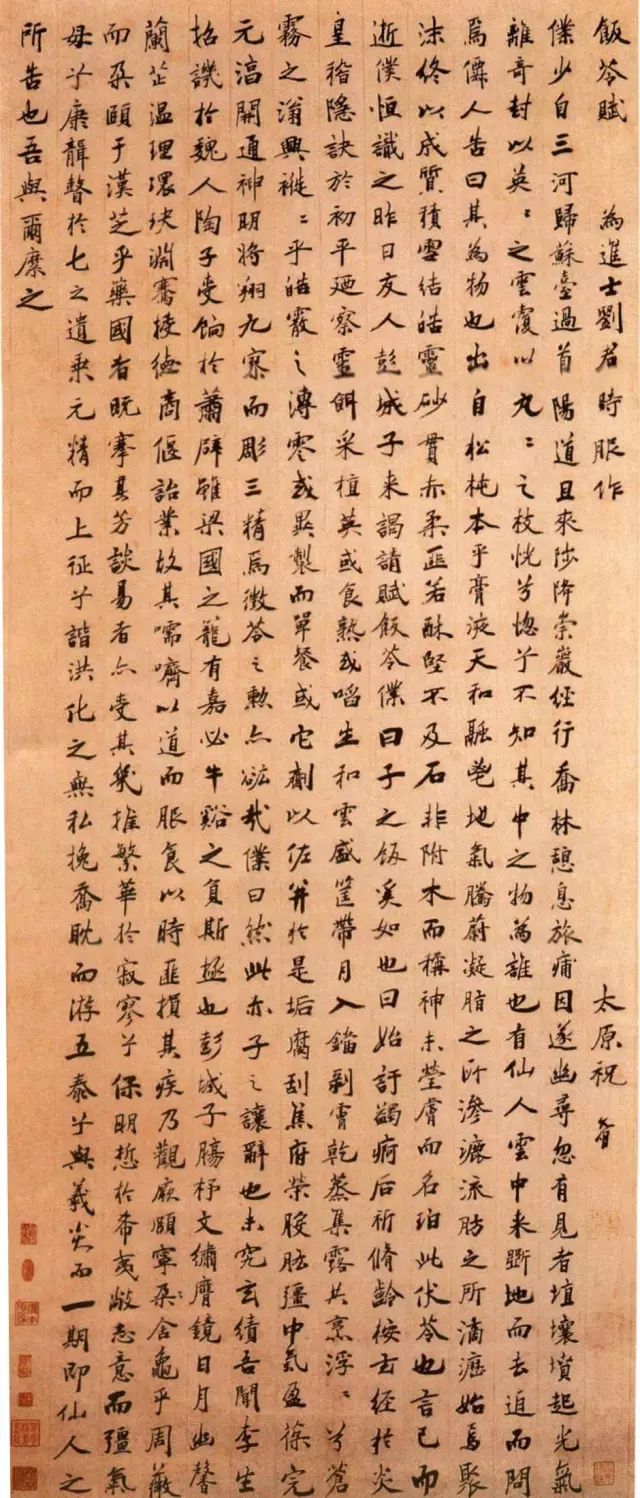 飯苓賦 為進士劉君時服作 太原祝
僕少自三河歸蘇臺過首陽道且來陟降崇巖經行喬林憩息旅痡因遂幽尋忽有見者埴壤墳起光氣
離奇封以英〻之雲覆以丸〻之枝恍兮惚兮不知其中之物為誰也有仙人雲中来斸地而去追而問
焉僊人告曰其為物也出自松杶本乎膏液天和融鬯地氣騰蔚凝脂之所滲漉流肪之所滴瀝始焉聚
沫終以成質積雪結皓靈砂貫赤柔匪若酥堅不及石非附木而稱神未瑩膚而名珀此伏苓也言已而
逝僕恒識之昨日友人彭城子来謁請賦飯苓僕曰子之飯奚如也曰始訏蠲痾后祈脩齡按玄經於炎
皇稽隱訣於初平廼察靈餌采植英或食熟或啗生和雲盛筐帶月入鐺剝膚乾蒸集露共烹浮〻兮蒼
霧之滃興襁〻乎皓霰之漙零或異製而單餐或它劑以佐并於是垢腐刮焦府榮胲肱彊中氣盈葆完
元滈開通神明將翔九寥而彫三精焉微苓之勲亦竑哉僕曰然此亦子之讓辭也未究玄績吾聞李生
招譏於魏人陶子受餉於蕭辟雖梁國之籠有嘉必牛谿之負斯極也彭城子腸杼文繡膺鏡日月幽馨
蘭芷温理環玦淵騫授德商偃詒業故其嚅嚌以道而服食以時匪損其疾乃觀厥頤寧朶含龜乎周薇
而朶頤于漢芝乎藥國者既搴其芳談易者亦受其幾推繁華於寂寥兮保明悊於希夷敝志意而彊氣
母兮廉韻聲於七之遺乘元精而上征兮諧洪化之無私挽喬耽而游五泰兮與羲炎而一期即仙人之
所告也吾與爾縻之